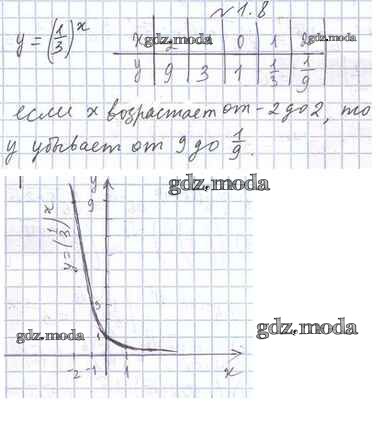 № 1.8
y = (1/3)^x
x | 2 | | 0 | 1 | 2
y | 9 | 3 | 1 | 1/3 | 1/9
gdz.moda gdz.moda
если x возрастает от -2 до 2, то
y убывает от 9 до 1/9.
gdz.moda
y
9
y = (1/3)^x
3
1
gdz.moda
gdz.moda
-2 -1 1 x